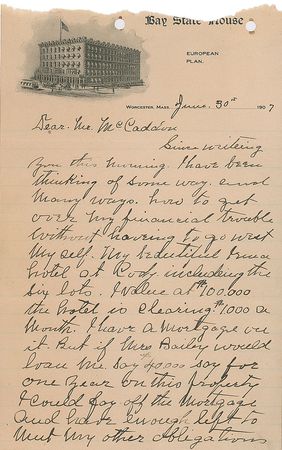 Bay State House
EUROPEAN
PLAN.
WORCESTER, MASS. June. 30st 1907
Dear. Mr. McCaddon
Since writing
you this morning. I have been
thinking of some way. and
many ways. how to get
over my financial trouble
without having to go west
my self. My beautiful Irma
hotel at Cody. including the
six lots. I value at $100.000
the hotel is clearing $1000 a
month. I have a mortgage on
it. But if Mrs Bailey would
loan me. say $40000 say for
one year on this property
I could pay off the mortgage
and have enough left to
meet my other obligations